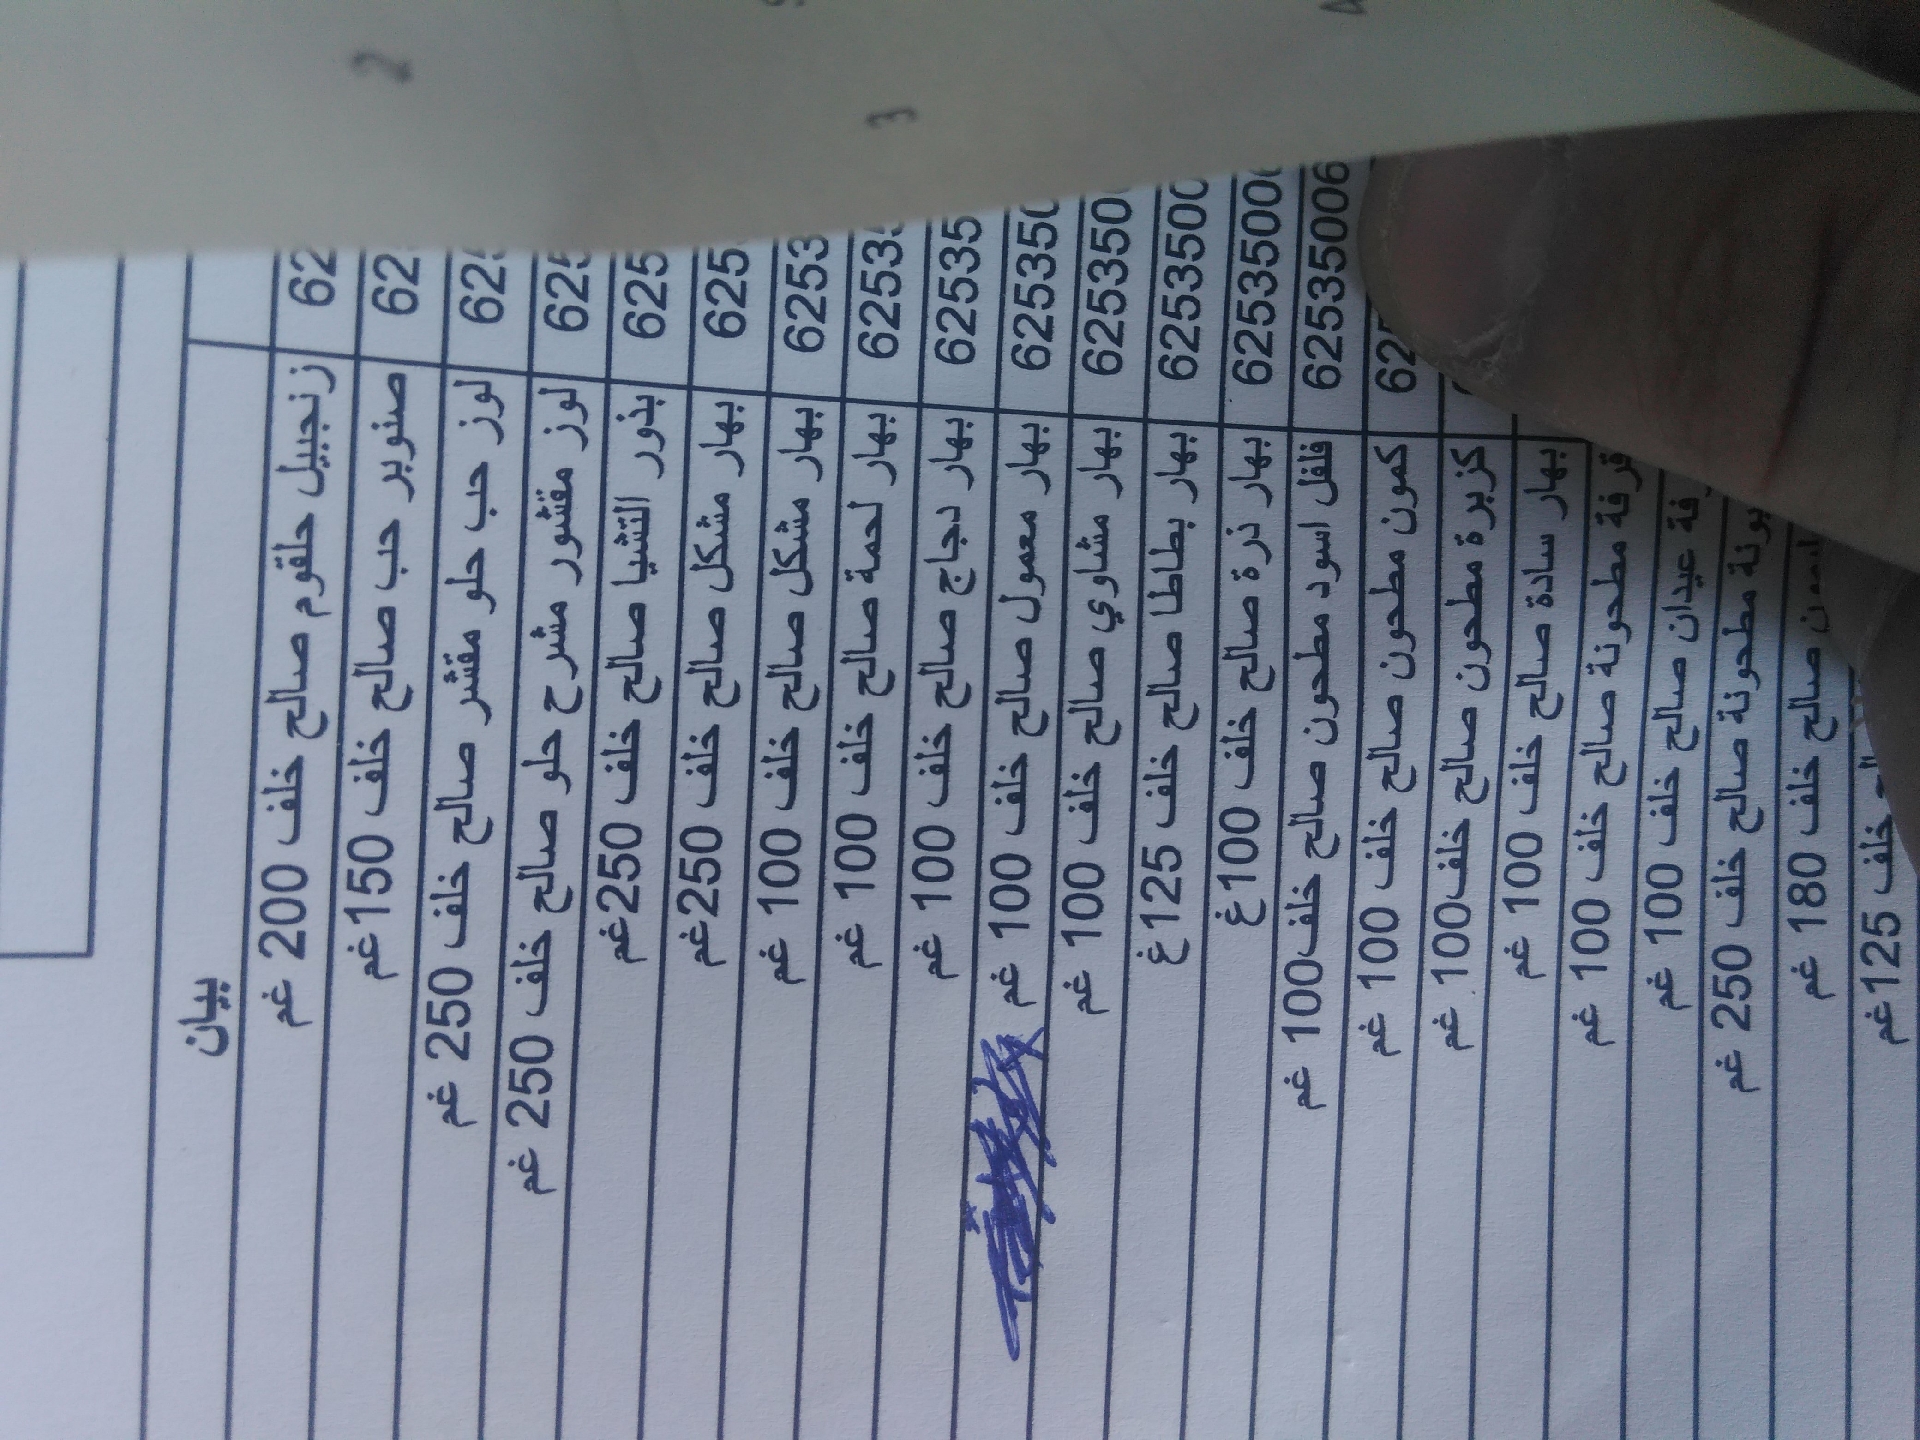 2
3
بيان
62 زنجبيل حلقوم صالح خلف 200 غم
62 صنوبر حب صالح خلف 150غم
625 لوز حب حلو مقشر صالح خلف 250 غم
625 لوز مقشور مشرح حلو صالح خلف 250 غم
625 بذور التشيا صالح خلف 250غم
625 بهار مشكل صالح خلف 250غم
6253 بهار مشكل صالح خلف 100 غم
6253 بهار لحمة صالح خلف 100 غم
62535 بهار دجاج صالح خلف 100 غم
625350 بهار معمول صالح خلف 100 غم
625350 بهار مشاوي صالح خلف 100 غم
6253500 بهار بطاطا صالح خلف 125غ
6253500 بهار ذرة صالح خلف 100غ
625350006 فلفل اسود مطحون صالح خلف100 غم
62 كمون مطحون صالح خلف 100 غم
كزبرة مطحون صالح خلف100 غم
بهار سادة صالح خلف 100 غم
قرفة مطحونة صالح خلف 100 غم
فة عيدان صالح خلف 100 غم
ونة مطحونة صالح خلف 250 غم
صالح خلف 180 غم
خلف 125غم